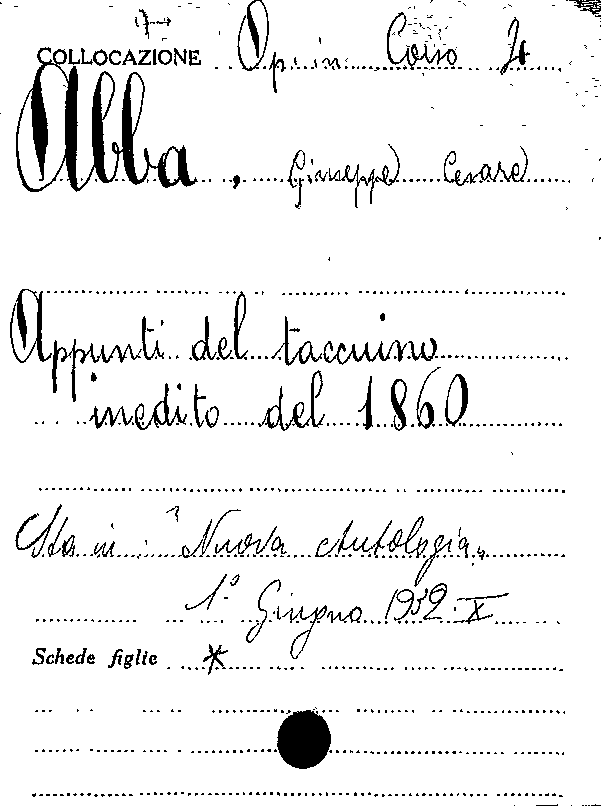 COLLOCAZIONE Op. in Corso 21
Abba, Giuseppe Cesare
Appunti del taccuino
inedito del 1860
Sta in: "Nuova Antologia"
1.º Giugno 1932.X
Schede figlie *